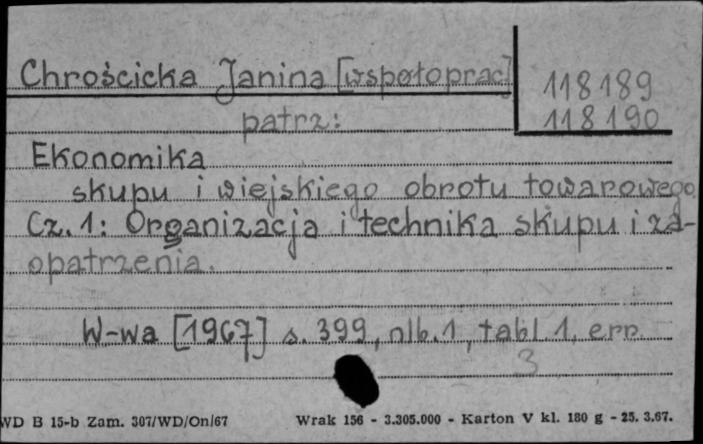 Chrościcka Janina [współoprac]
118189
118190
patrz:
Ekonomika
skupu i wiejskiego obrotu towarowego.
Cz. 1: Organizacja i technika skupu i za-
opatrzenia.
W-wa [1967] s. 399, nlb. 1, tabl 1, err.
3
WD B 15-b Zam. 307/WD/On/67 Wrak 156 - 3.305.000 - Karton V kl. 180 g - 25. 3.67.